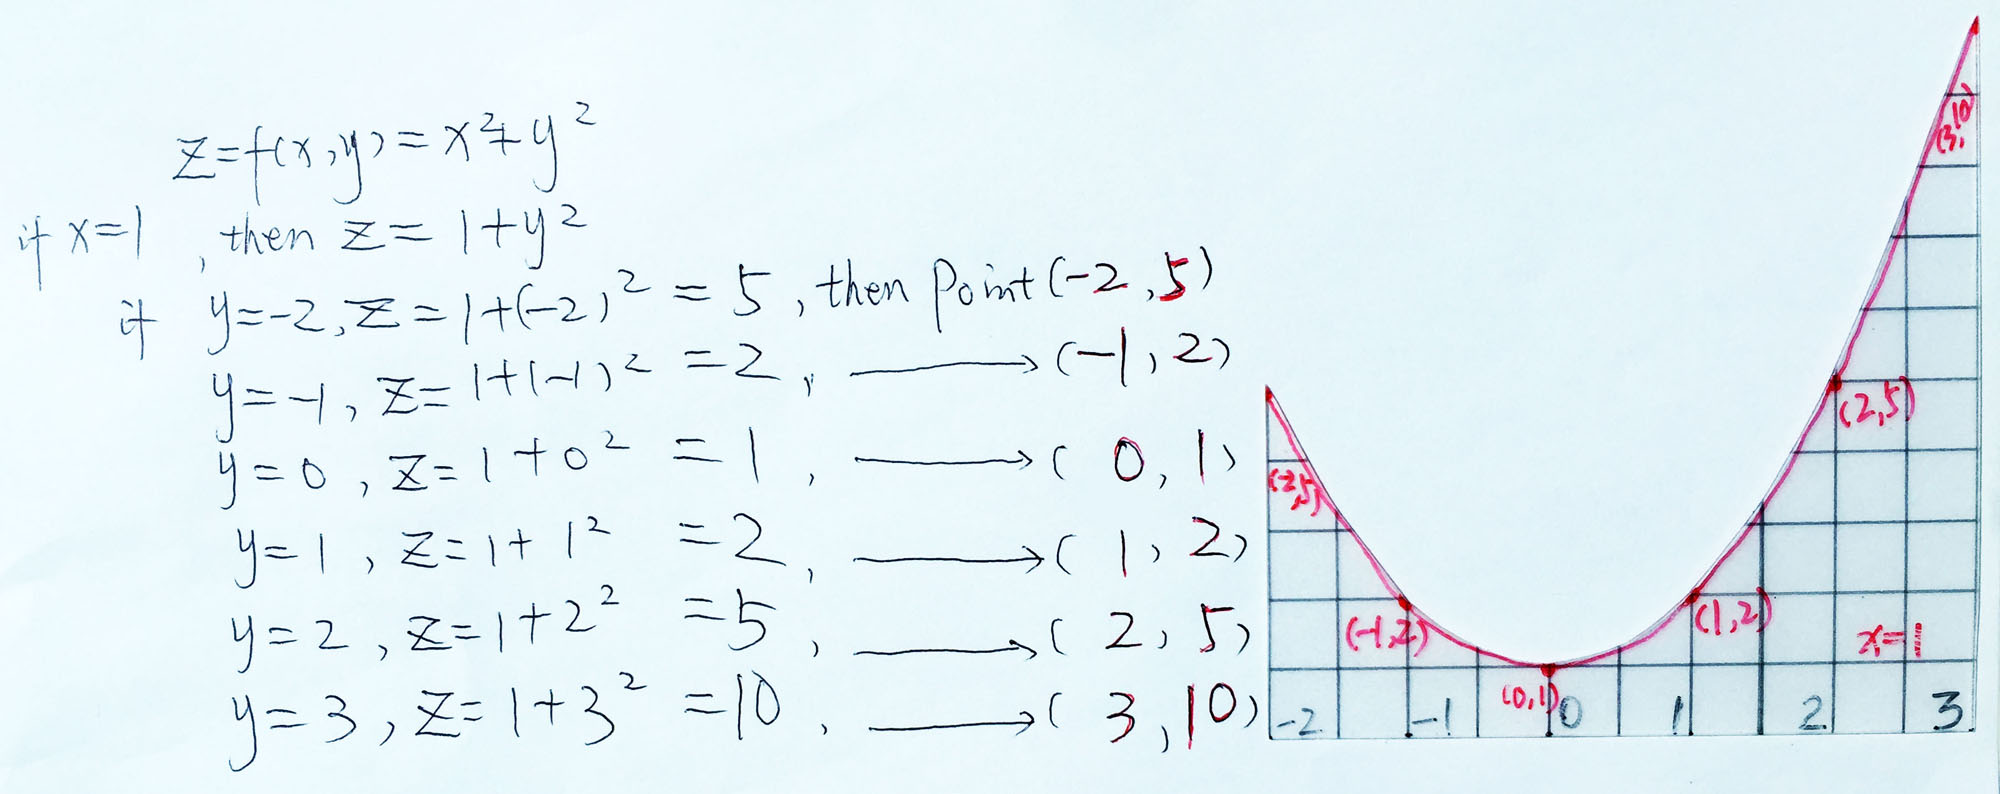 z=f(x,y)=x²+y²
if x=1, then z=1+y²
if y=-2, z=1+(-2)²=5, then Point(-2,5)
y=-1, z=1+(-1)²=2, ⟶(-1,2)
y=0, z=1+0²=1, ⟶(0,1)
y=1, z=1+1²=2, ⟶(1,2)
y=2, z=1+2²=5, ⟶(2,5)
y=3, z=1+3²=10, ⟶(3,10)
(3,10)
(2,5)
(-2,5)
(-1,2)
(1,2)
x=1
(0,1)
-2 -1 0 1 2 3